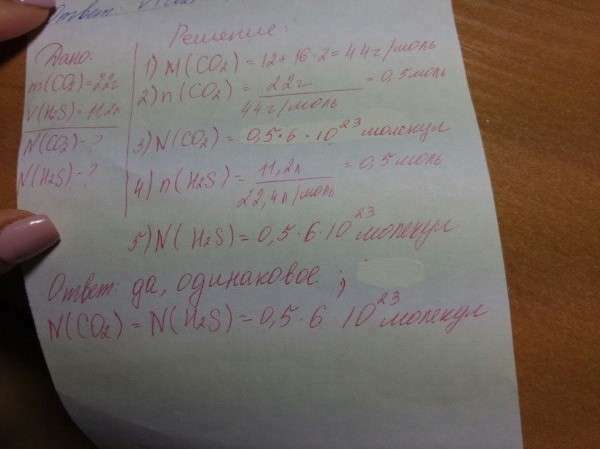 Ответ:
Решение:
Дано:
m(CO2)=22г
V(H2S)=11,2л
N(CO2)-?
N(H2S)-?
1) M(CO2)=12+16·2=44г/моль
2) n(CO2)= 22г / 44г/моль = 0,5 моль
3) N(CO2)=0,5·6·10²³ молекул
4) n(H2S)= 11,2л / 22,4л/моль = 0,5 моль
5) N(H2S)=0,5·6·10²³ молекул
Ответ: да, одинаковое;
N(CO2)=N(H2S)=0,5·6·10²³ молекул